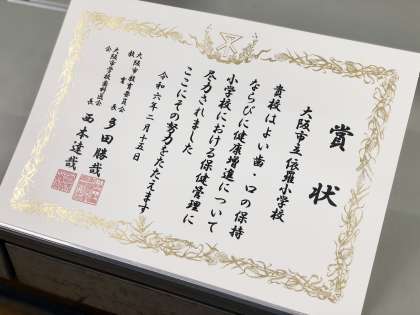 賞状
大阪市立依羅小学校
貴校はよい歯・口の保持
ならびに健康増進について
小学校における保健管理に
尽力されました
ここにその努力をたたえます
令和六年二月十五日
大阪市教育委員会
教育長 多田勝哉
大阪市学校歯科医会
会長 西本達哉